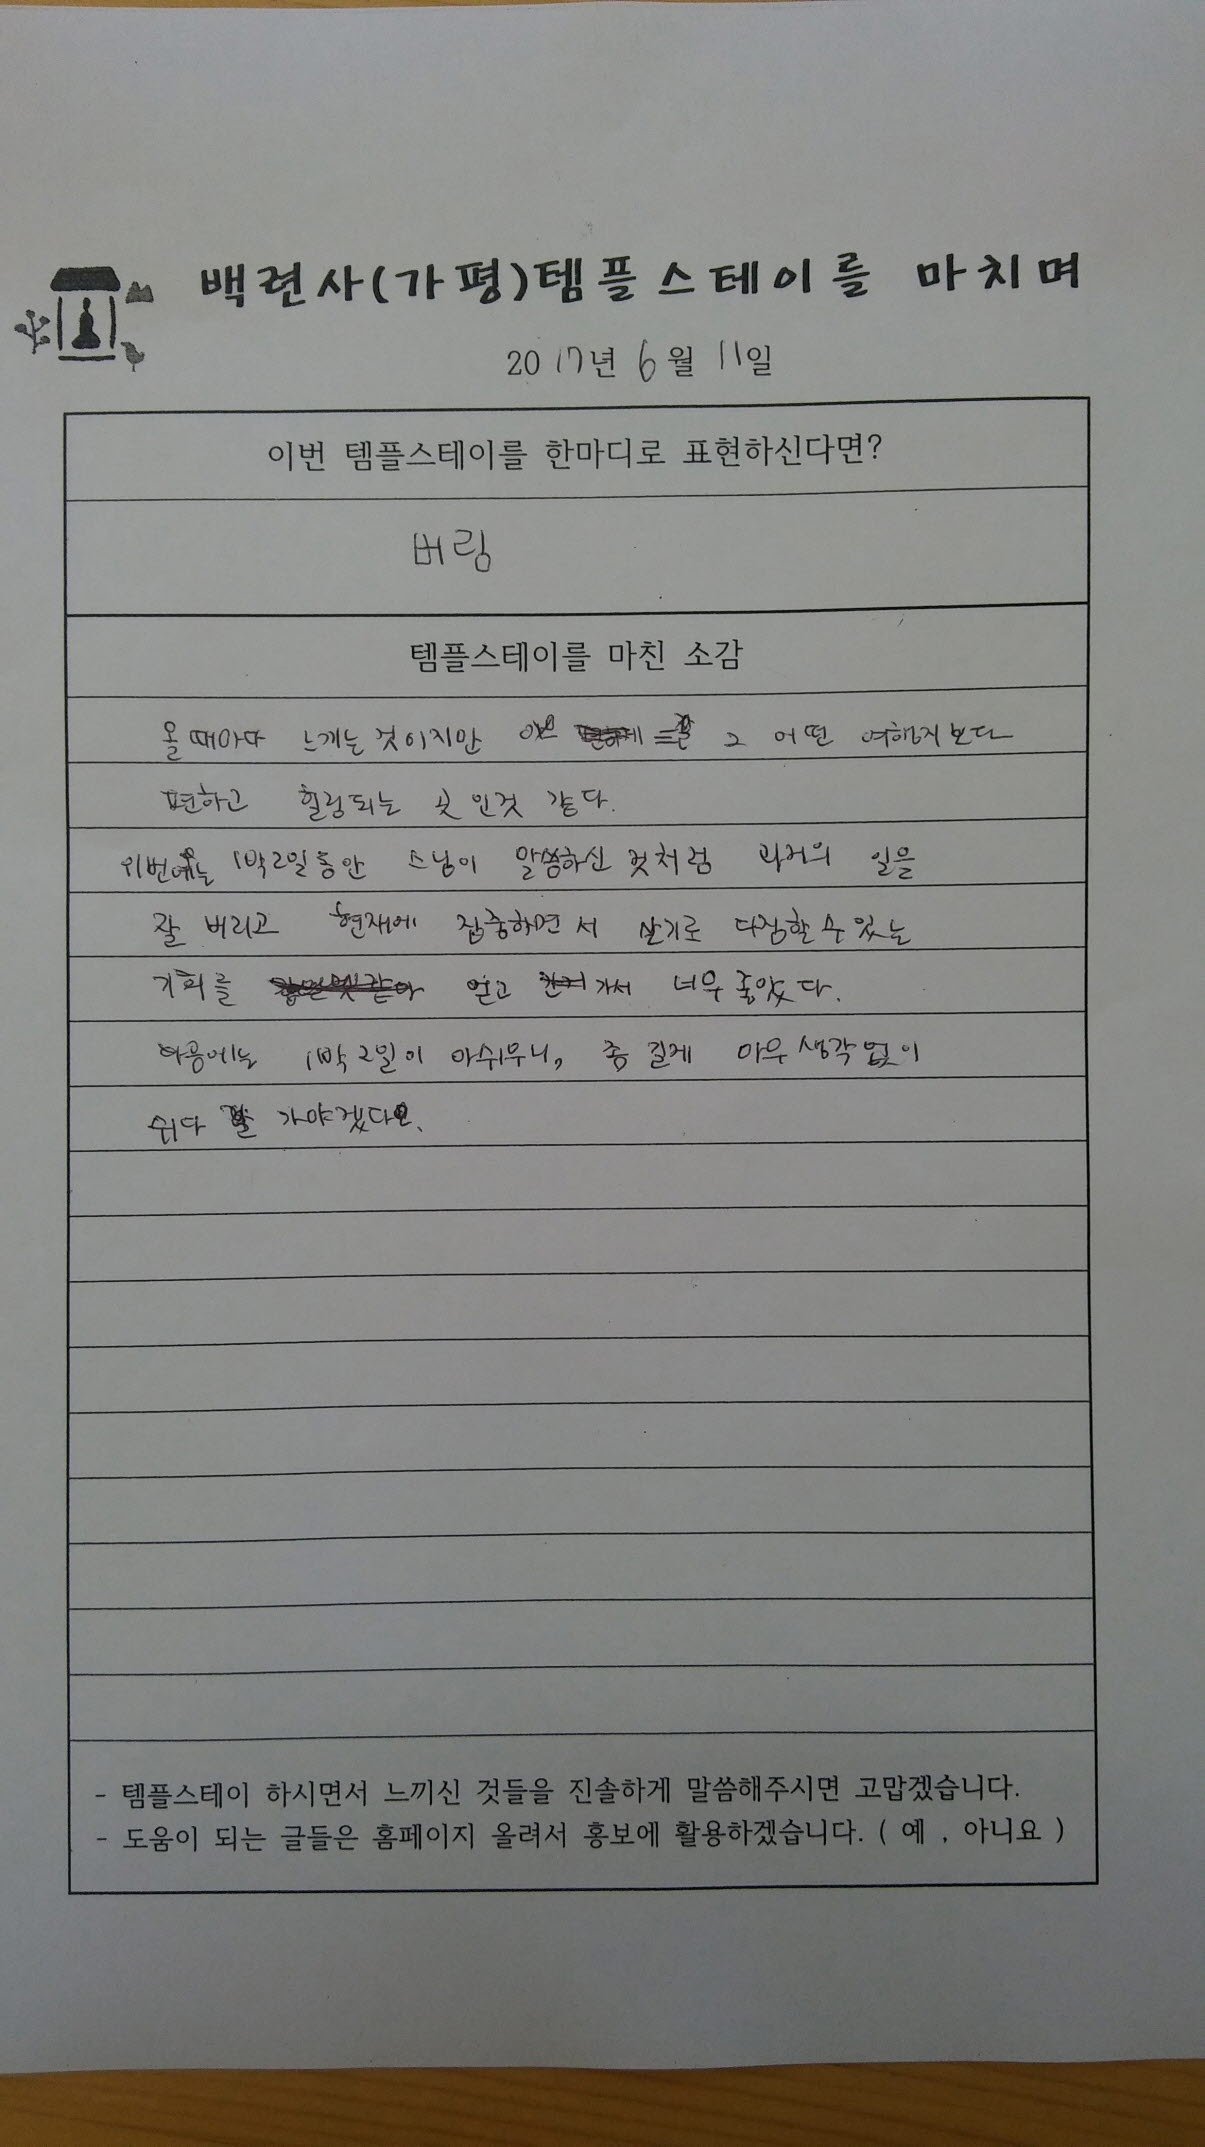 백련사(가평)템플스테이를 마치며
2017년 6월 11일
이번 템플스테이를 한마디로 표현하신다면?
버림
템플스테이를 마친 소감
올 때마다 느끼는 것이지만 그 어떤 여행지보다
편하고 힐링되는 곳 인것 같다.
이번에는 1박2일동안 스님이 말씀하신 것처럼 과거의 일을
잘 버리고 현재에 집중하면서 살기로 다짐할 수 있는
기회를 얻고 가서 너무 좋았다.
다음에는 1박 2일이 아쉬우니, 좀 길게 아무 생각 없이
쉬다 가야겠다.
- 템플스테이 하시면서 느끼신 것들을 진솔하게 말씀해주시면 고맙겠습니다.
- 도움이 되는 글들은 홈페이지 올려서 홍보에 활용하겠습니다. ( 예 , 아니요 )